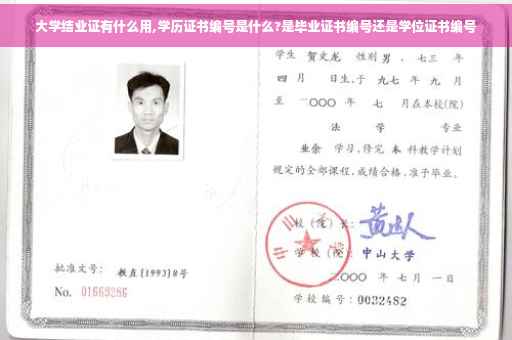 大学结业证有什么用,学历证书编号是什么?是毕业证书编号还是学位证书编号
学生 贺文龙 性别 男 、七三 年
四 月 日生,于 九七 年 九 月
至 二〇〇〇 年 七 月在本校(院)
法 学 专业
业余 学习,修完 本 科教学计划
规定的全部课程,成绩合格,准予毕业。
校(院)长:
学校(院): 中山大学
二〇〇〇 年 七 月 一 日
学校编号: 0032482
批准文号: 教直(1993)8号
No. 01663286